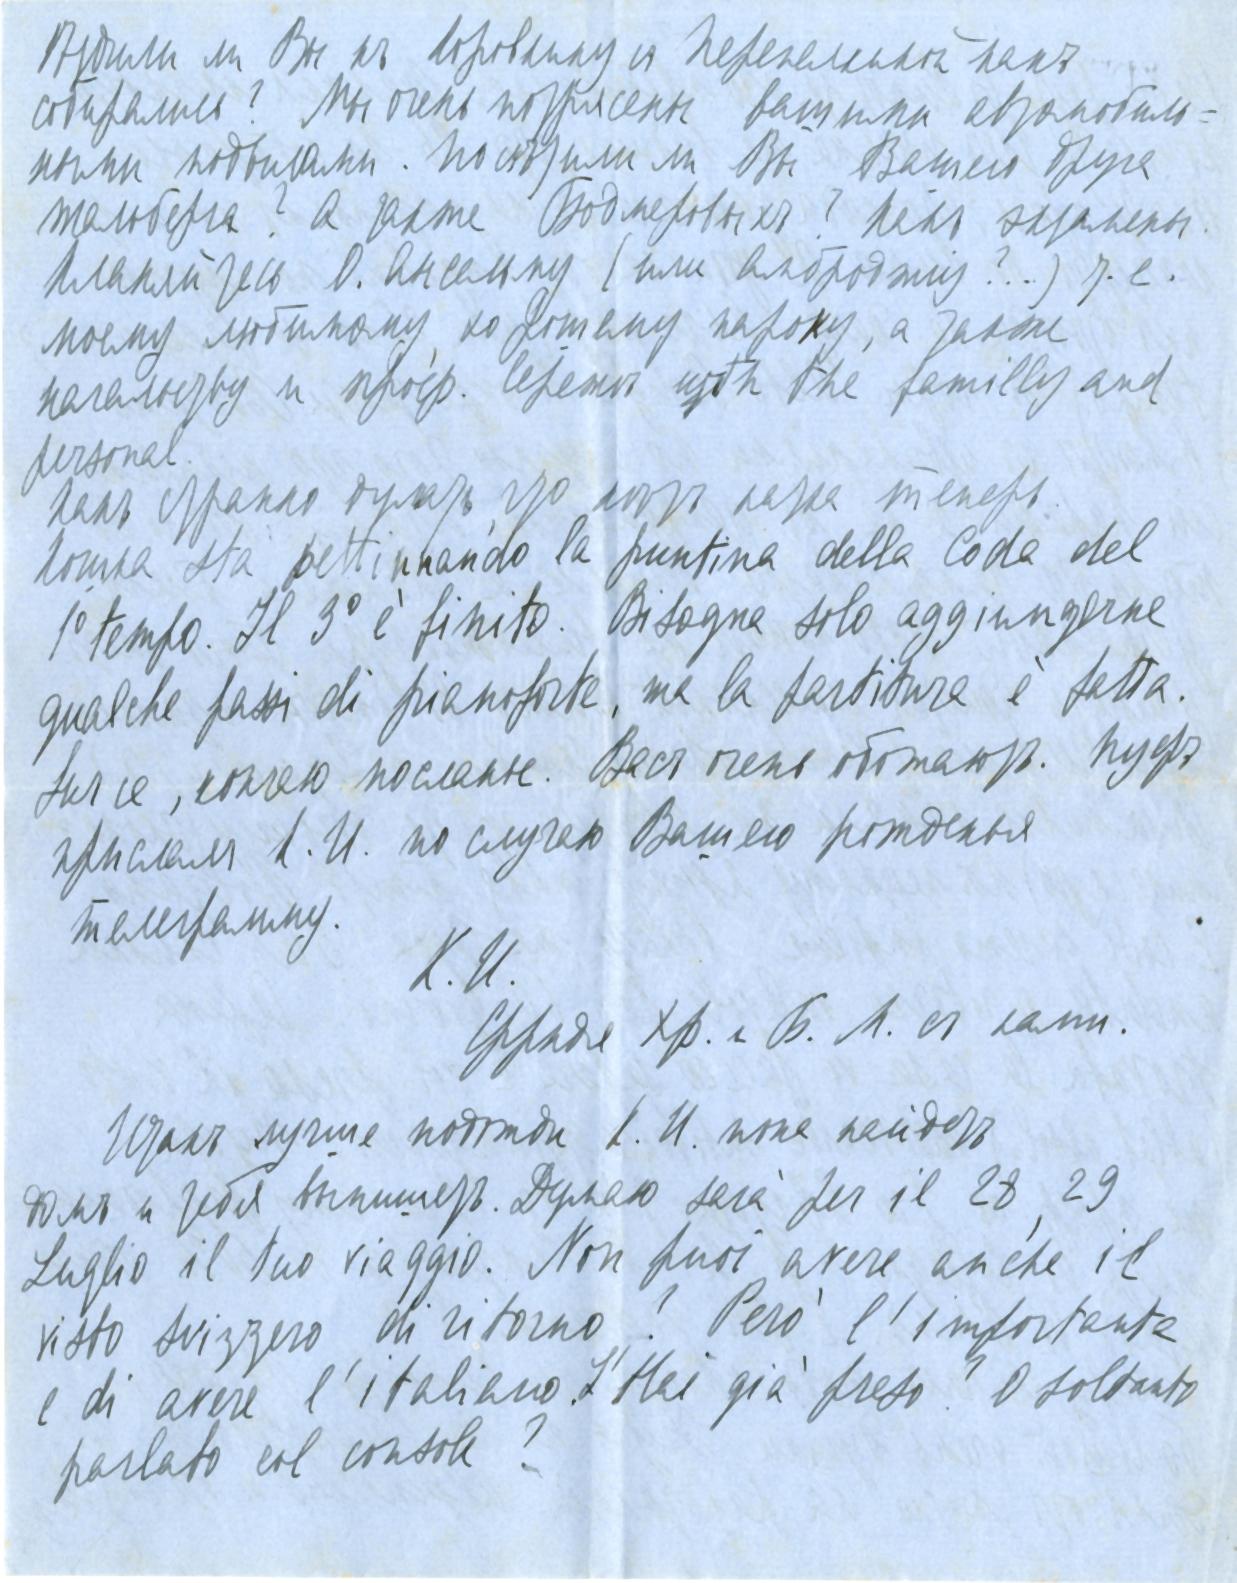 Ѣздили ли Вы къ Коровкину и Перекалиной какъ
собирались? Мы очень потрясены вашими автомобиль=
ными подвигами. Посѣтили ли Вы Вашего друга
Тальберга? А также Бодмеровыхъ? Какъ экзамены.
Кланяйтесь О. Ансельму (или Амброджіу?..) т.е.
моему любимому, хорошему пароху, а также
начальству и проф. with the familly and
personal.
Какъ странно думать, что нѣтъ папа теперь.
Кошка sta pettinnando la puntina della Coda del
1º tempo. Il 3º è finito. Bisogna solo aggiungerne
qualche passi di pianoforte, ma la partitura è fatta.
кончаю посланье. Васъ очень обожаютъ. Пусть
прислали К.И. по случаю Вашего рожденья
телеграмму.
К.И.
Хр. и Б. М. съ нами.
Итакъ лучше подожди К.И. пока найдетъ
домъ и тебя выпишетъ. Думаю sarà per il 28, 29
Luglio il tuo viaggio. Non puoi avere anche il
visto svizzero di ritorno? Però l'importante
e di avere l'italiano. L'Hai già preso? O soltanto
parlato col console?